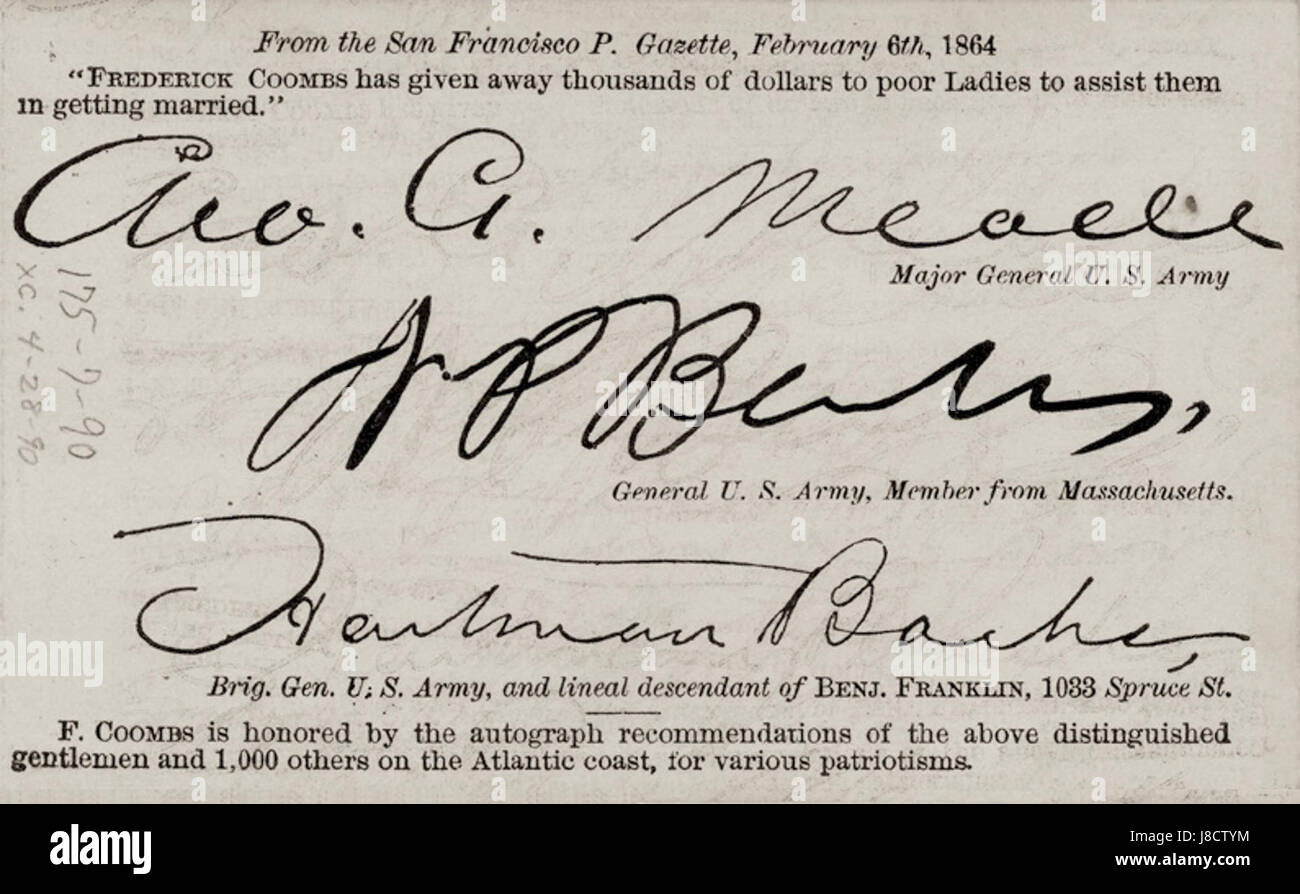 From the San Francisco P. Gazette, February 6th, 1864
"FREDERICK COOMBS has given away thousands of dollars to poor Ladies to assist them
in getting married."
Geo. G. Meade
Major General U. S. Army
N P Banks,
General U. S. Army, Member from Massachusetts.
Hartman Bache,
Brig. Gen. U. S. Army, and lineal descendant of BENJ. FRANKLIN, 1033 Spruce St.
F. COOMBS is honored by the autograph recommendations of the above distinguished
gentlemen and 1,000 others on the Atlantic coast, for various patriotisms.
175-7-90
XC. 4-28-90
alamy
alamy
Image ID: J8CTYM
www.alamy.com